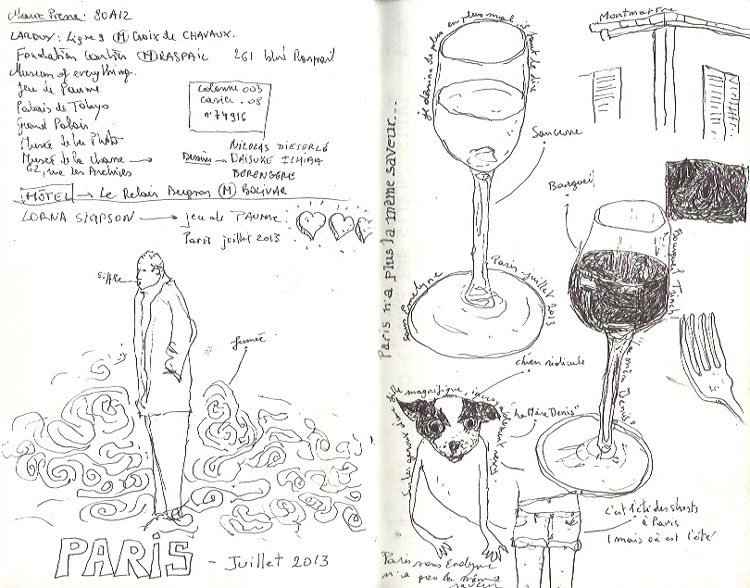 80A12
Ligne 9 (M) Croix de CHAVAUX.
Fondation Cartier (M) RASPAIL 261
Museum of everything.
Jeu de Paume
Palais de Tokyo
Grand Palais
Musée de la Photo
Musée de la chasse
62, rue des Archives
colonne 003
casier . 08
n° 74916
Dessin
NICOLAS
DAISUKE ICHIBA
BERENGERE
HÔTEL → Le Relais Bergson (M) BOLIVAR
LORNA SIMPSON → jeu de PAUME
Paris juillet 2013
siffle
fumée
PARIS - Juillet 2013
Paris n'a plus la même saveur...
je dessine de plus en plus mal, il faut le dire
Sancerre
Paris - juillet 2013
sans Emelyne
Montmartre
Bourgueil
"La mère Denis"
chien ridicule
"La Mère Denis"
magnifique
c'est l'été des shorts
à Paris
(mais où est l'été
Paris sans Emelyne
n'a pas la même
saveur